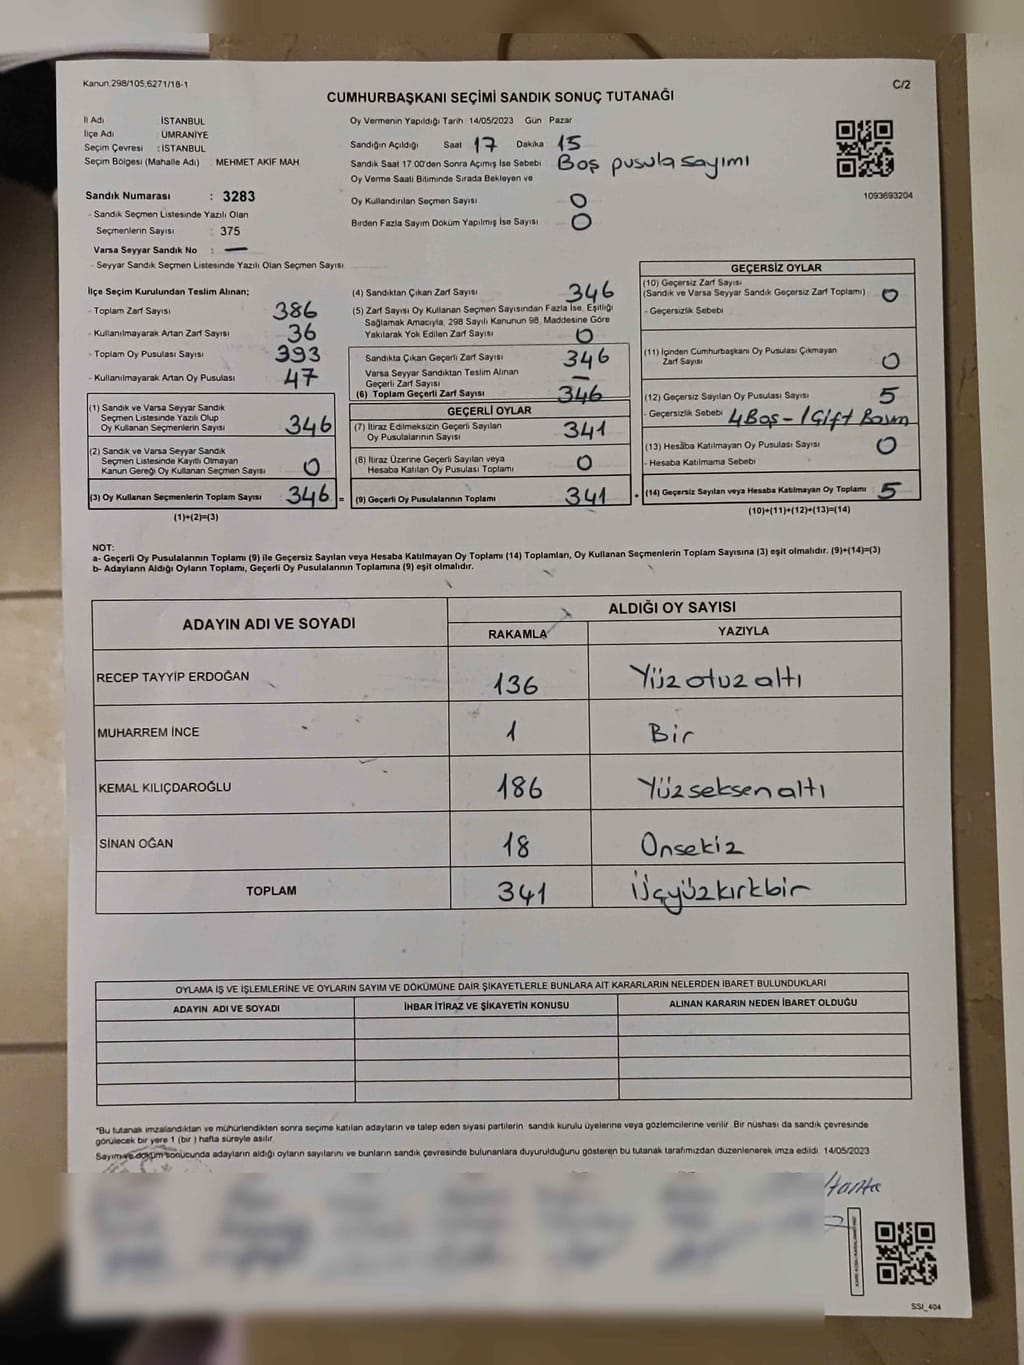 Kanun,298/105,6271/18-1
C/2
CUMHURBAŞKANI SEÇİMİ SANDIK SONUÇ TUTANAĞI
İl Adı İSTANBUL
İlçe Adı ÜMRANİYE
Seçim Çevresi : İSTANBUL
Seçim Bölgesi (Mahalle Adı) . MEHMET AKIF MAH
Sandık Numarası : 3283
- Sandık Seçmen Listesinde Yazılı Olan
Seçmenlerin Sayısı : 375
Varsa Seyyar Sandık No : —
- Seyyar Sandık Seçmen Listesinde Yazılı Olan Seçmen Sayısı
Oy Vermenin Yapıldığı Tarih 14/05/2023 Gün Pazar
Sandığın Açıldığı Saat 17 Dakika 15
Sandık Saat 17:00'den Sonra Açımış İse Sebebi Boş pusula sayımı
Oy Verme Saati Bitiminde Sırada Bekleyen ve
Oy Kullandırılan Seçmen Sayısı 0
Birden Fazla Sayım Döküm Yapılmış İse Sayısı 0
1093693204
İlçe Seçim Kurulundan Teslim Alınan;
- Toplam Zarf Sayısı 386
- Kullanılmayarak Artan Zarf Sayısı 36
- Toplam Oy Pusulası Sayısı 393
- Kullanılmayarak Artan Oy Pusulası 47
(1) Sandık ve Varsa Seyyar Sandık
Seçmen Listesinde Yazılı Olup
Oy Kullanan Seçmenlerin Sayısı 346
(2) Sandık ve Varsa Seyyar Sandık
Seçmen Listesinde Kayıtlı Olmayan
Kanun Gereği Oy Kullanan Seçmen Sayısı 0
(3) Oy Kullanan Seçmenlerin Toplam Sayısı 346 =
(1)+(2)=(3)
(4) Sandıktan Çıkan Zarf Sayısı 346
(5) Zarf Sayısı Oy Kullanan Seçmen Sayısından Fazla İse, Eşitliği
Sağlamak Amacıyla, 298 Sayılı Kanunun 98. Maddesine Göre
Yakılarak Yok Edilen Zarf Sayısı 0
Sandıkta Çıkan Geçerli Zarf Sayısı 346
Varsa Seyyar Sandıktan Teslim Alınan
Geçerli Zarf Sayısı —
(6) Toplam Geçerli Zarf Sayısı 346
GEÇERLİ OYLAR
(7) İtiraz Edilmeksizin Geçerli Sayılan
Oy Pusulalarının Sayısı 341
(8) İtiraz Üzerine Geçerli Sayılan veya
Hesaba Katılan Oy Pusulası Toplamı 0
(9) Geçerli Oy Pusulalarının Toplamı 341 +
GEÇERSİZ OYLAR
(10) Geçersiz Zarf Sayısı
(Sandık ve Varsa Seyyar Sandık Geçersiz Zarf Toplamı) 0
- Geçersizlik Sebebi
(11) İçinden Cumhurbaşkanı Oy Pusulası Çıkmayan
Zarf Sayısı 0
(12) Geçersiz Sayılan Oy Pusulası Sayısı 5
- Geçersizlik Sebebi 4 Boş - 1 Çift Basım
(13) Hesaba Katılmayan Oy Pusulası Sayısı 0
- Hesaba Katılmama Sebebi
(14) Geçersiz Sayılan veya Hesaba Katılmayan Oy Toplamı : 5
(10)+(11)+(12)+(13)=(14)
NOT:
a- Geçerli Oy Pusulalarının Toplamı (9) ile Geçersiz Sayılan veya Hesaba Katılmayan Oy Toplamı (14) Toplamları, Oy Kullanan Seçmenlerin Toplam Sayısına (3) eşit olmalıdır. (9)+(14)=(3)
b- Adayların Aldığı Oyların Toplamı, Geçerli Oy Pusulalarının Toplamına (9) eşit olmalıdır.
ADAYIN ADI VE SOYADI ALDIĞI OY SAYISI
RAKAMLA YAZIYLA
RECEP TAYYİP ERDOĞAN 136 Yüzotuzaltı
MUHARREM İNCE 1 Bir
KEMAL KILIÇDAROĞLU 186 Yüzseksenaltı
SİNAN OĞAN 18 Onsekiz
TOPLAM 341 Üçyüzkırkbir
OYLAMA İŞ VE İŞLEMLERİNE VE OYLARIN SAYIM VE DÖKÜMÜNE DAİR ŞİKAYETLERLE BUNLARA AİT KARARLARIN NELERDEN İBARET BULUNDUKLARI
ADAYIN ADI VE SOYADI İHBAR İTİRAZ VE ŞİKAYETİN KONUSU ALINAN KARARIN NEDEN İBARET OLDUĞU
*Bu tutanak imzalandıktan ve mühürlendikten sonra seçime katılan adayların ve talep eden siyasi partilerin sandık kurulu üyelerine veya gözlemcilerine verilir. Bir nüshası da sandık çevresinde
görülecek bir yere 1 (bir ) hafta süreyle asılır.
Sayım ve döküm sonucunda adayların aldığı oyların sayılarını ve bunların sandık çevresinde bulunanlara duyurulduğunu gösteren bu tutanak tarafımızdan düzenlenerek imza edildi. 14/05/2023
SSI_404